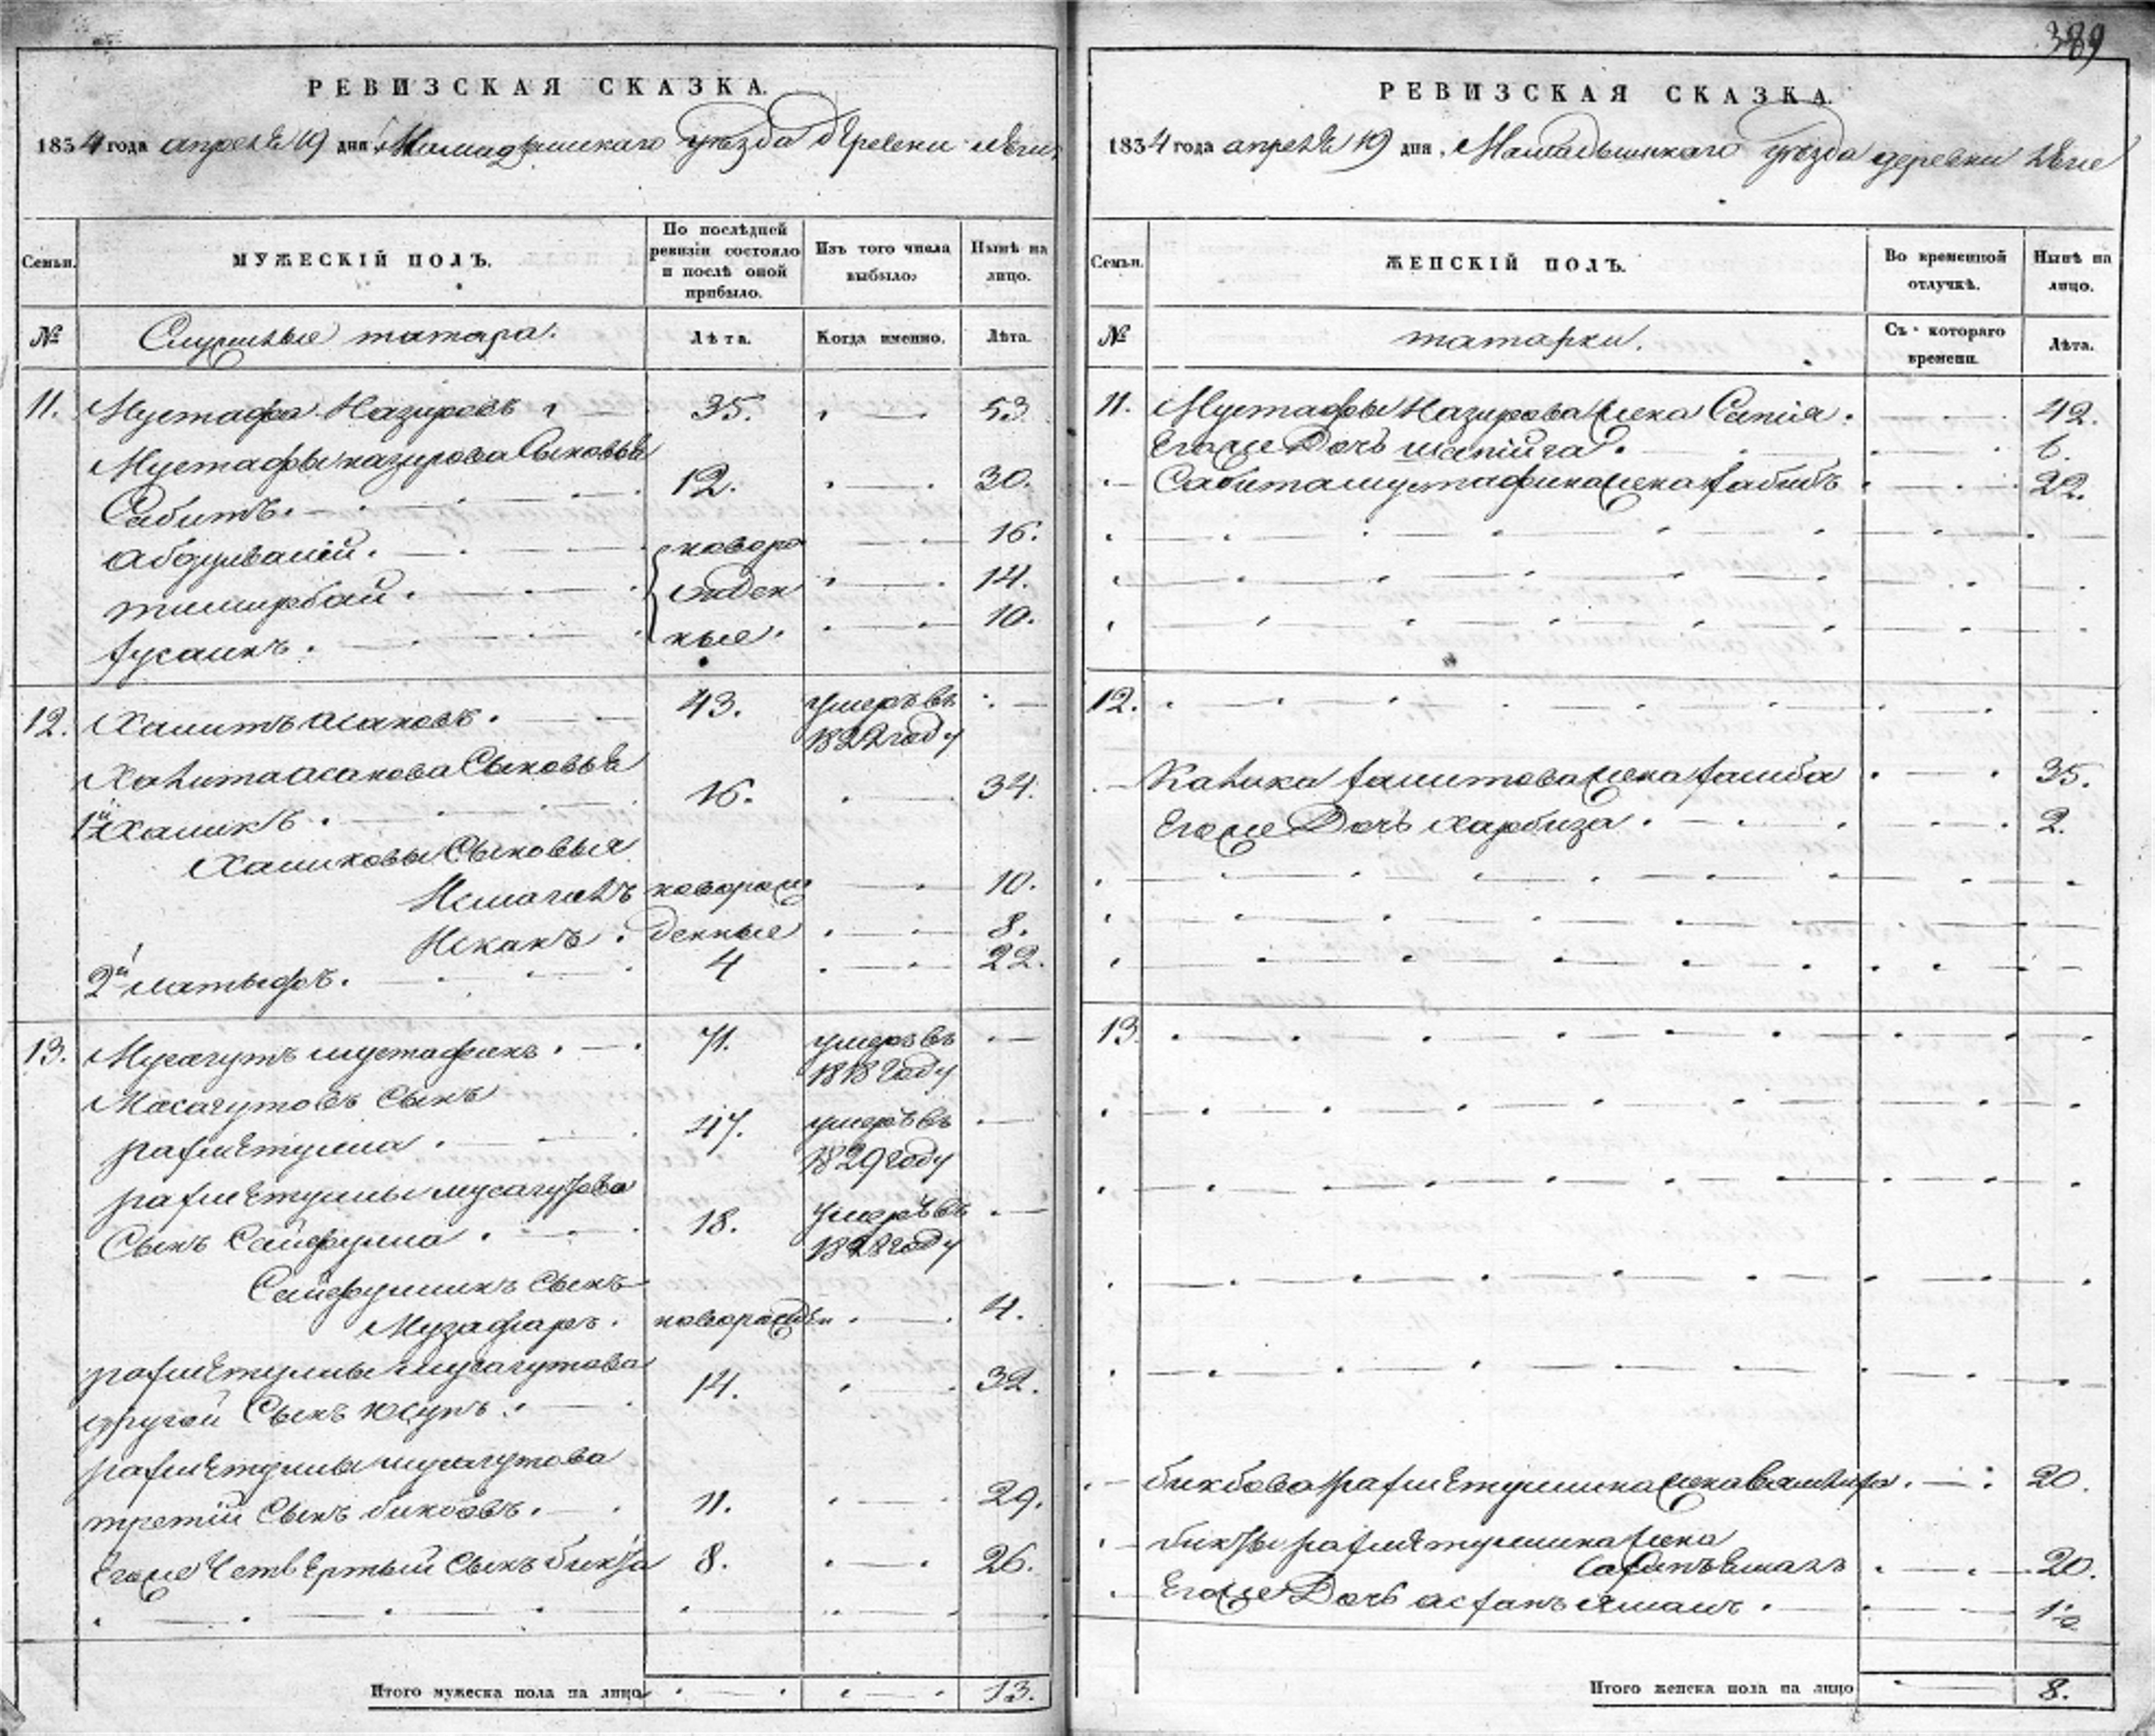 389
РЕВИЗСКАЯ СКАЗКА.
1834 года апреля 19 дня Мамадышскаго уѣзда деревни
Семьи.
МУЖЕСКІЙ ПОЛЪ.
По послѣдней ревизіи состояло и послѣ оной прибыло.
Изъ того числа выбыло.
Нынѣ на лицо.
№
Служилые татара.
Лѣта.
Когда именно.
Лѣта.
11. Мустафа Назировъ 35. 53
Мустафы назирова Сыновья
Сабитъ. 12. 30.
Абдулвалій. новоро 16.
тимирбай. жден 14.
хусаинъ. ные. 10.
12. Хамитъ асановъ. 43. умеръ въ
1822 году
Хамита асанова Сыновья
1й Халикъ. 16. 34.
Халиковы Сыновья
Исмагилъ новорож 10.
Искакъ. денные 8.
2й латыфъ. 4 22.
13. Мусагутъ мустафинъ. 71. умеръ въ
1818 году
Масагутовъ Сынъ
рахметулла. 47. умеръ въ
1829 году
рахметуллы мусагутова
Сынъ Сайфулла. 18. умеръ въ
1828 году
Сайфуллинъ Сынъ
Музафаръ. новорожден. 4.
рахметуллы мусагутова
другой Сынъ юсупъ. 14. 32.
рахметуллы мусагутова
третій Сынъ бикбовъ. 11. 29.
Егоже Четвертый Сынъ 8. 26.
Итого мужеска пола на лицо 13.
РЕВИЗСКАЯ СКАЗКА.
1834 года апреля 19 дня, Мамадышскаго уѣзда деревни
Семьи.
ЖЕНСКІЙ ПОЛЪ.
Во временной отлучкѣ.
Нынѣ на лицо.
№
татарки.
Съ котораго времени.
Лѣта.
11. Мустафы Назирова жена Сапія. 42.
Егоже Дочь 6.
Сабита мустафина жена хабибъ 22.
12.
Халика хамитова жена 35.
Егоже Дочь харбиза. 2.
13.
бикбова рахметуллина жена 20.
рахметуллина жена
20.
Егоже Дочь 1/2
Итого женска пола на лицо 8.